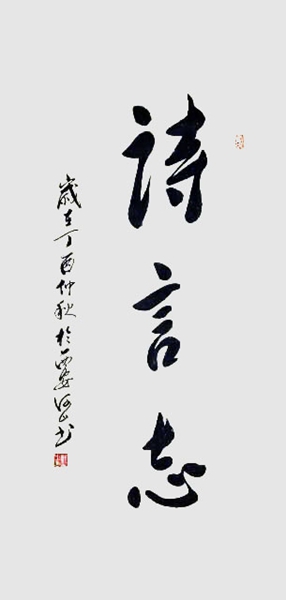 詩言志
歲在丁酉仲秋於西安河山書